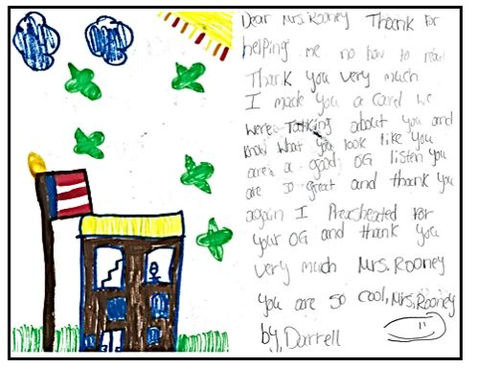 Dear Mrs. Rooney Thank for
helping me no how to read
Thank you very much
I made you a card we
were Talking about you and
know what you look like you
are a good OG listen you
are so great and thank you
again I Preacheated for
your OG and thank you
very much Mrs. Rooney
you are so cool, Mrs, Rooney
by, Darrell